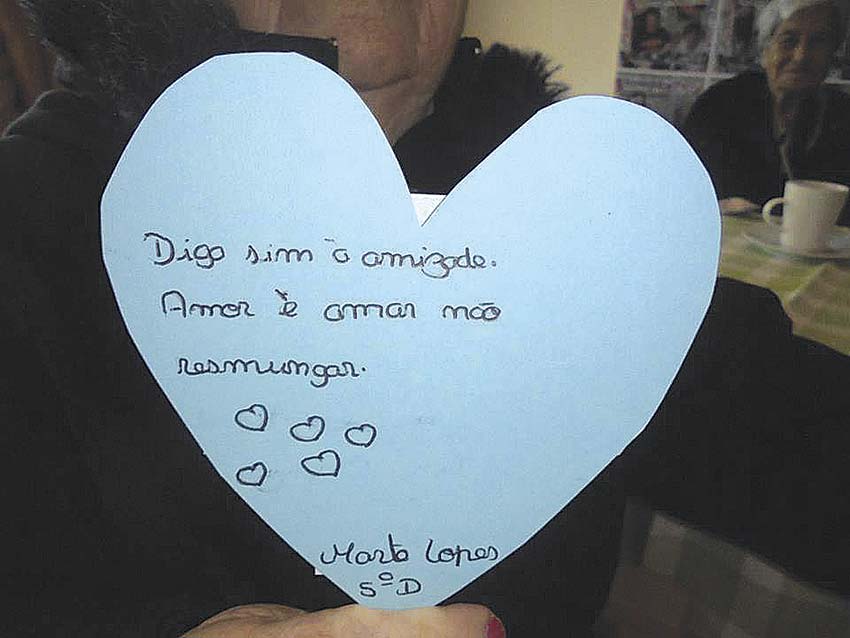 Digo sim à amizade.
Amor è amar não
resmungar.
Marta Lopes
5ºD